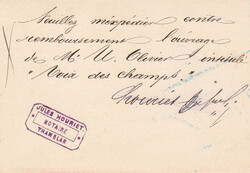 Veuillez m'expédier contre
remboursement l'ouvrage
de Mr U. Olivier, intitulé
"Voix des champs"
JULES HOURIET
NOTAIRE
TRAMELAN